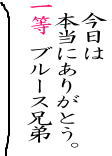 今日は
本当にありがとう。
一等 ブルース兄弟